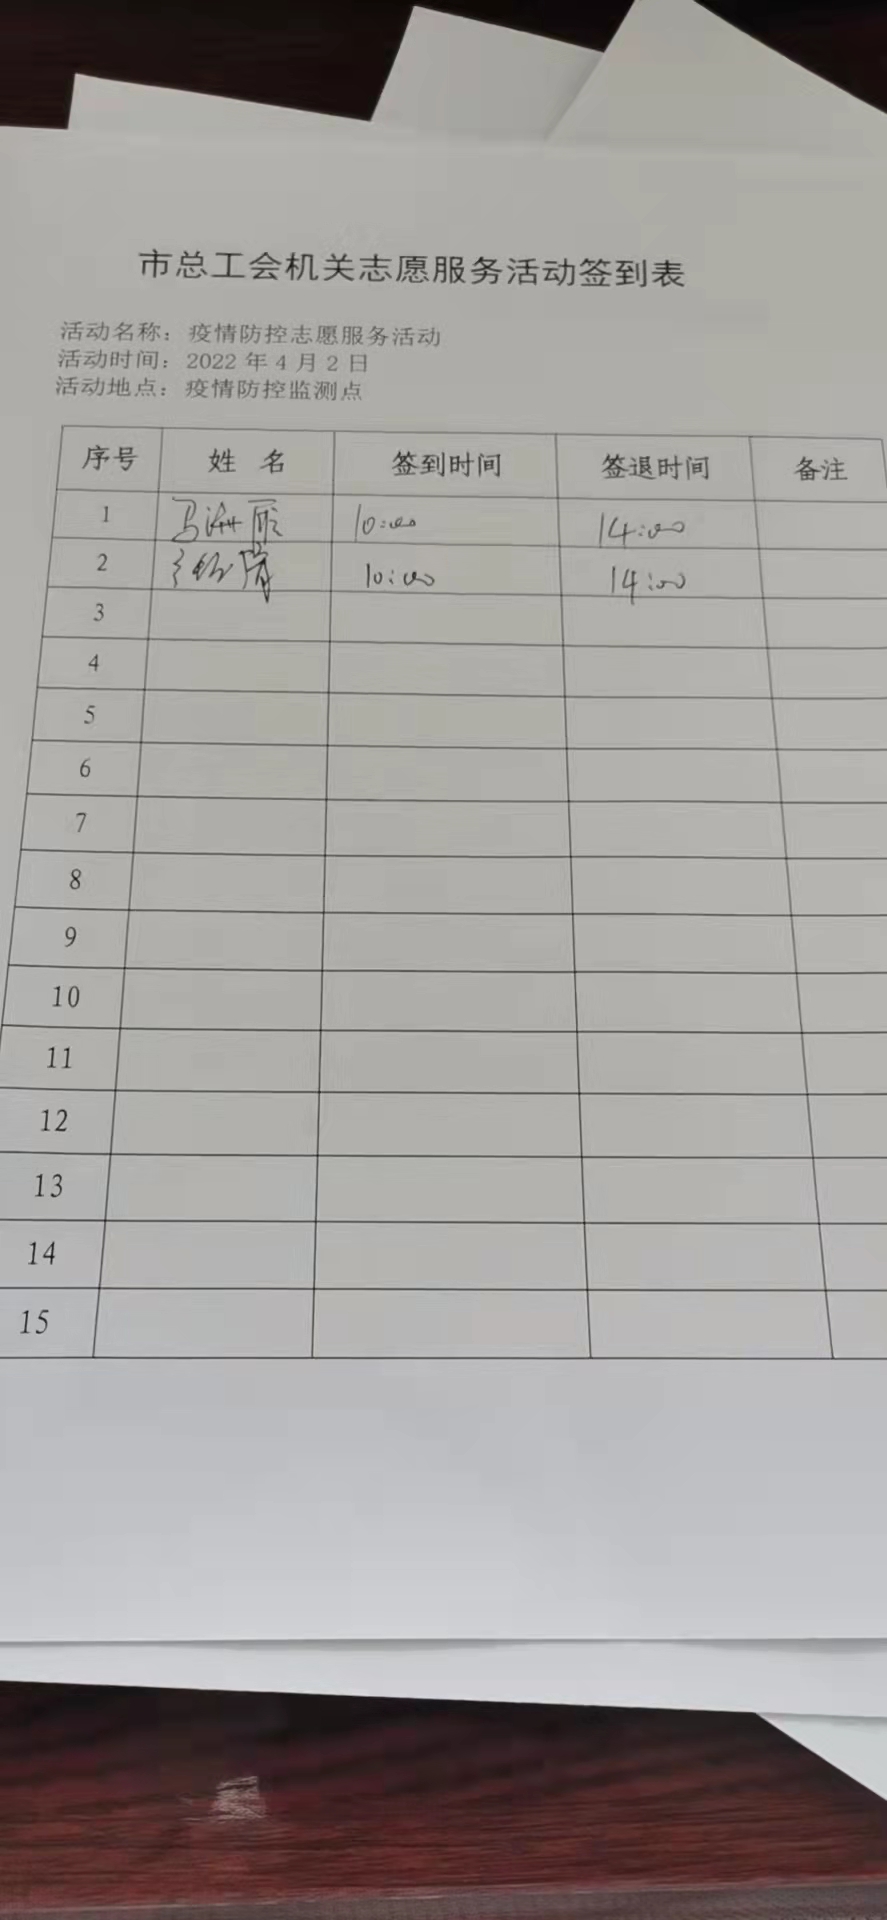 市总工会机关志愿服务活动签到表
活动名称：疫情防控志愿服务活动
活动时间：2022 年 4 月 2 日
活动地点：疫情防控监测点
序号 姓 名 签到时间 签退时间 备注
1 马 10:00 14:00
2 10:00 14:00
3
4
5
6
7
8
9
10
11
12
13
14
15